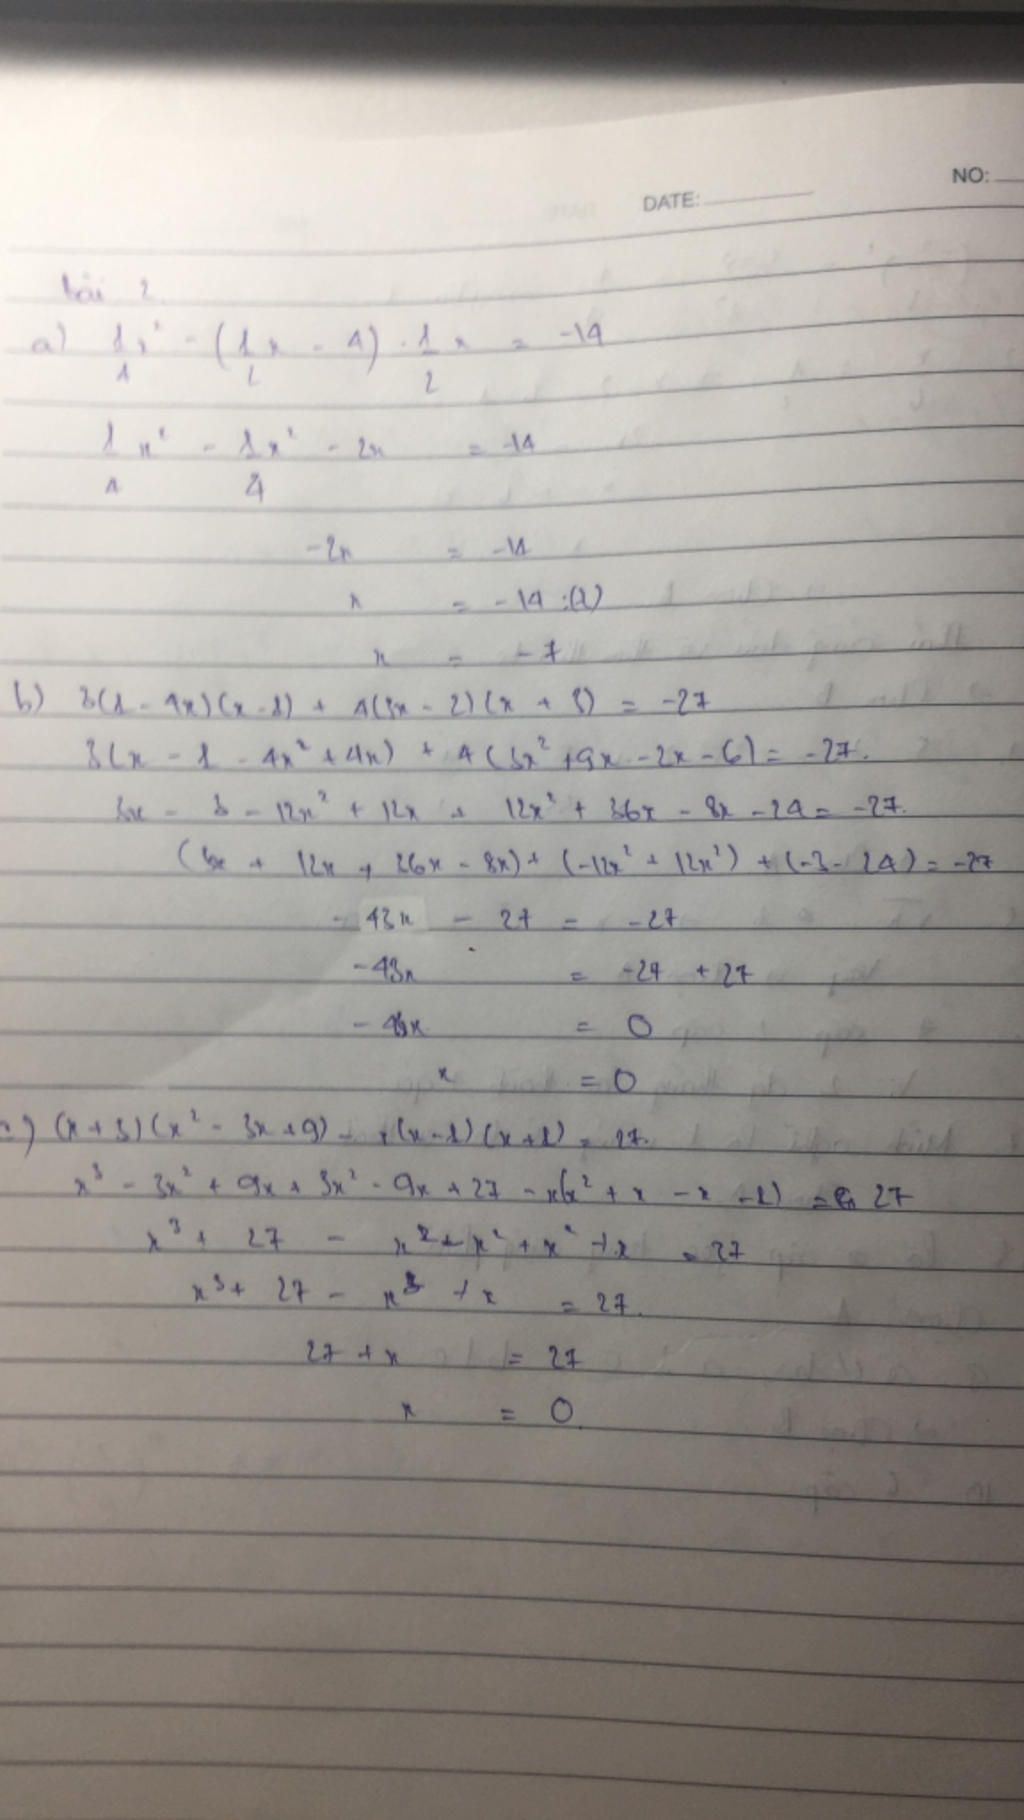 DATE: NO:
bài 2
a) 1/4 x² - (1/2 x - 4) . 1/2 x = -14
1/4 x² - 1/4 x² - 2x = -14
-2x = -14
x = -14 :(2)
x = -7
b) 3(1 - 4x)(x - 1) + 4(3x - 2)(x + 3) = -27
3(x - 1 - 4x² + 4x) + 4(3x² + 9x - 2x - 6) = -27.
3x - 3 - 12x² + 12x + 12x² + 36x - 8x - 24 = -27.
(3x + 12x + 36x - 8x) + (-12x² + 12x²) + (-3 - 24) = -27
- 43x - 27 = -27
-43x = -27 + 27
- 43x = 0
x = 0
c) (x + 3)(x² - 3x + 9) - x(x - 1)(x + 1) = 27.
x³ - 3x² + 9x + 3x² - 9x + 27 - x(x² + x - x - 1) = 27
x³ + 27 - x² + x² + x² + x = 27
x³ + 27 - x³ + x = 27.
27 + x = 27
x = 0.